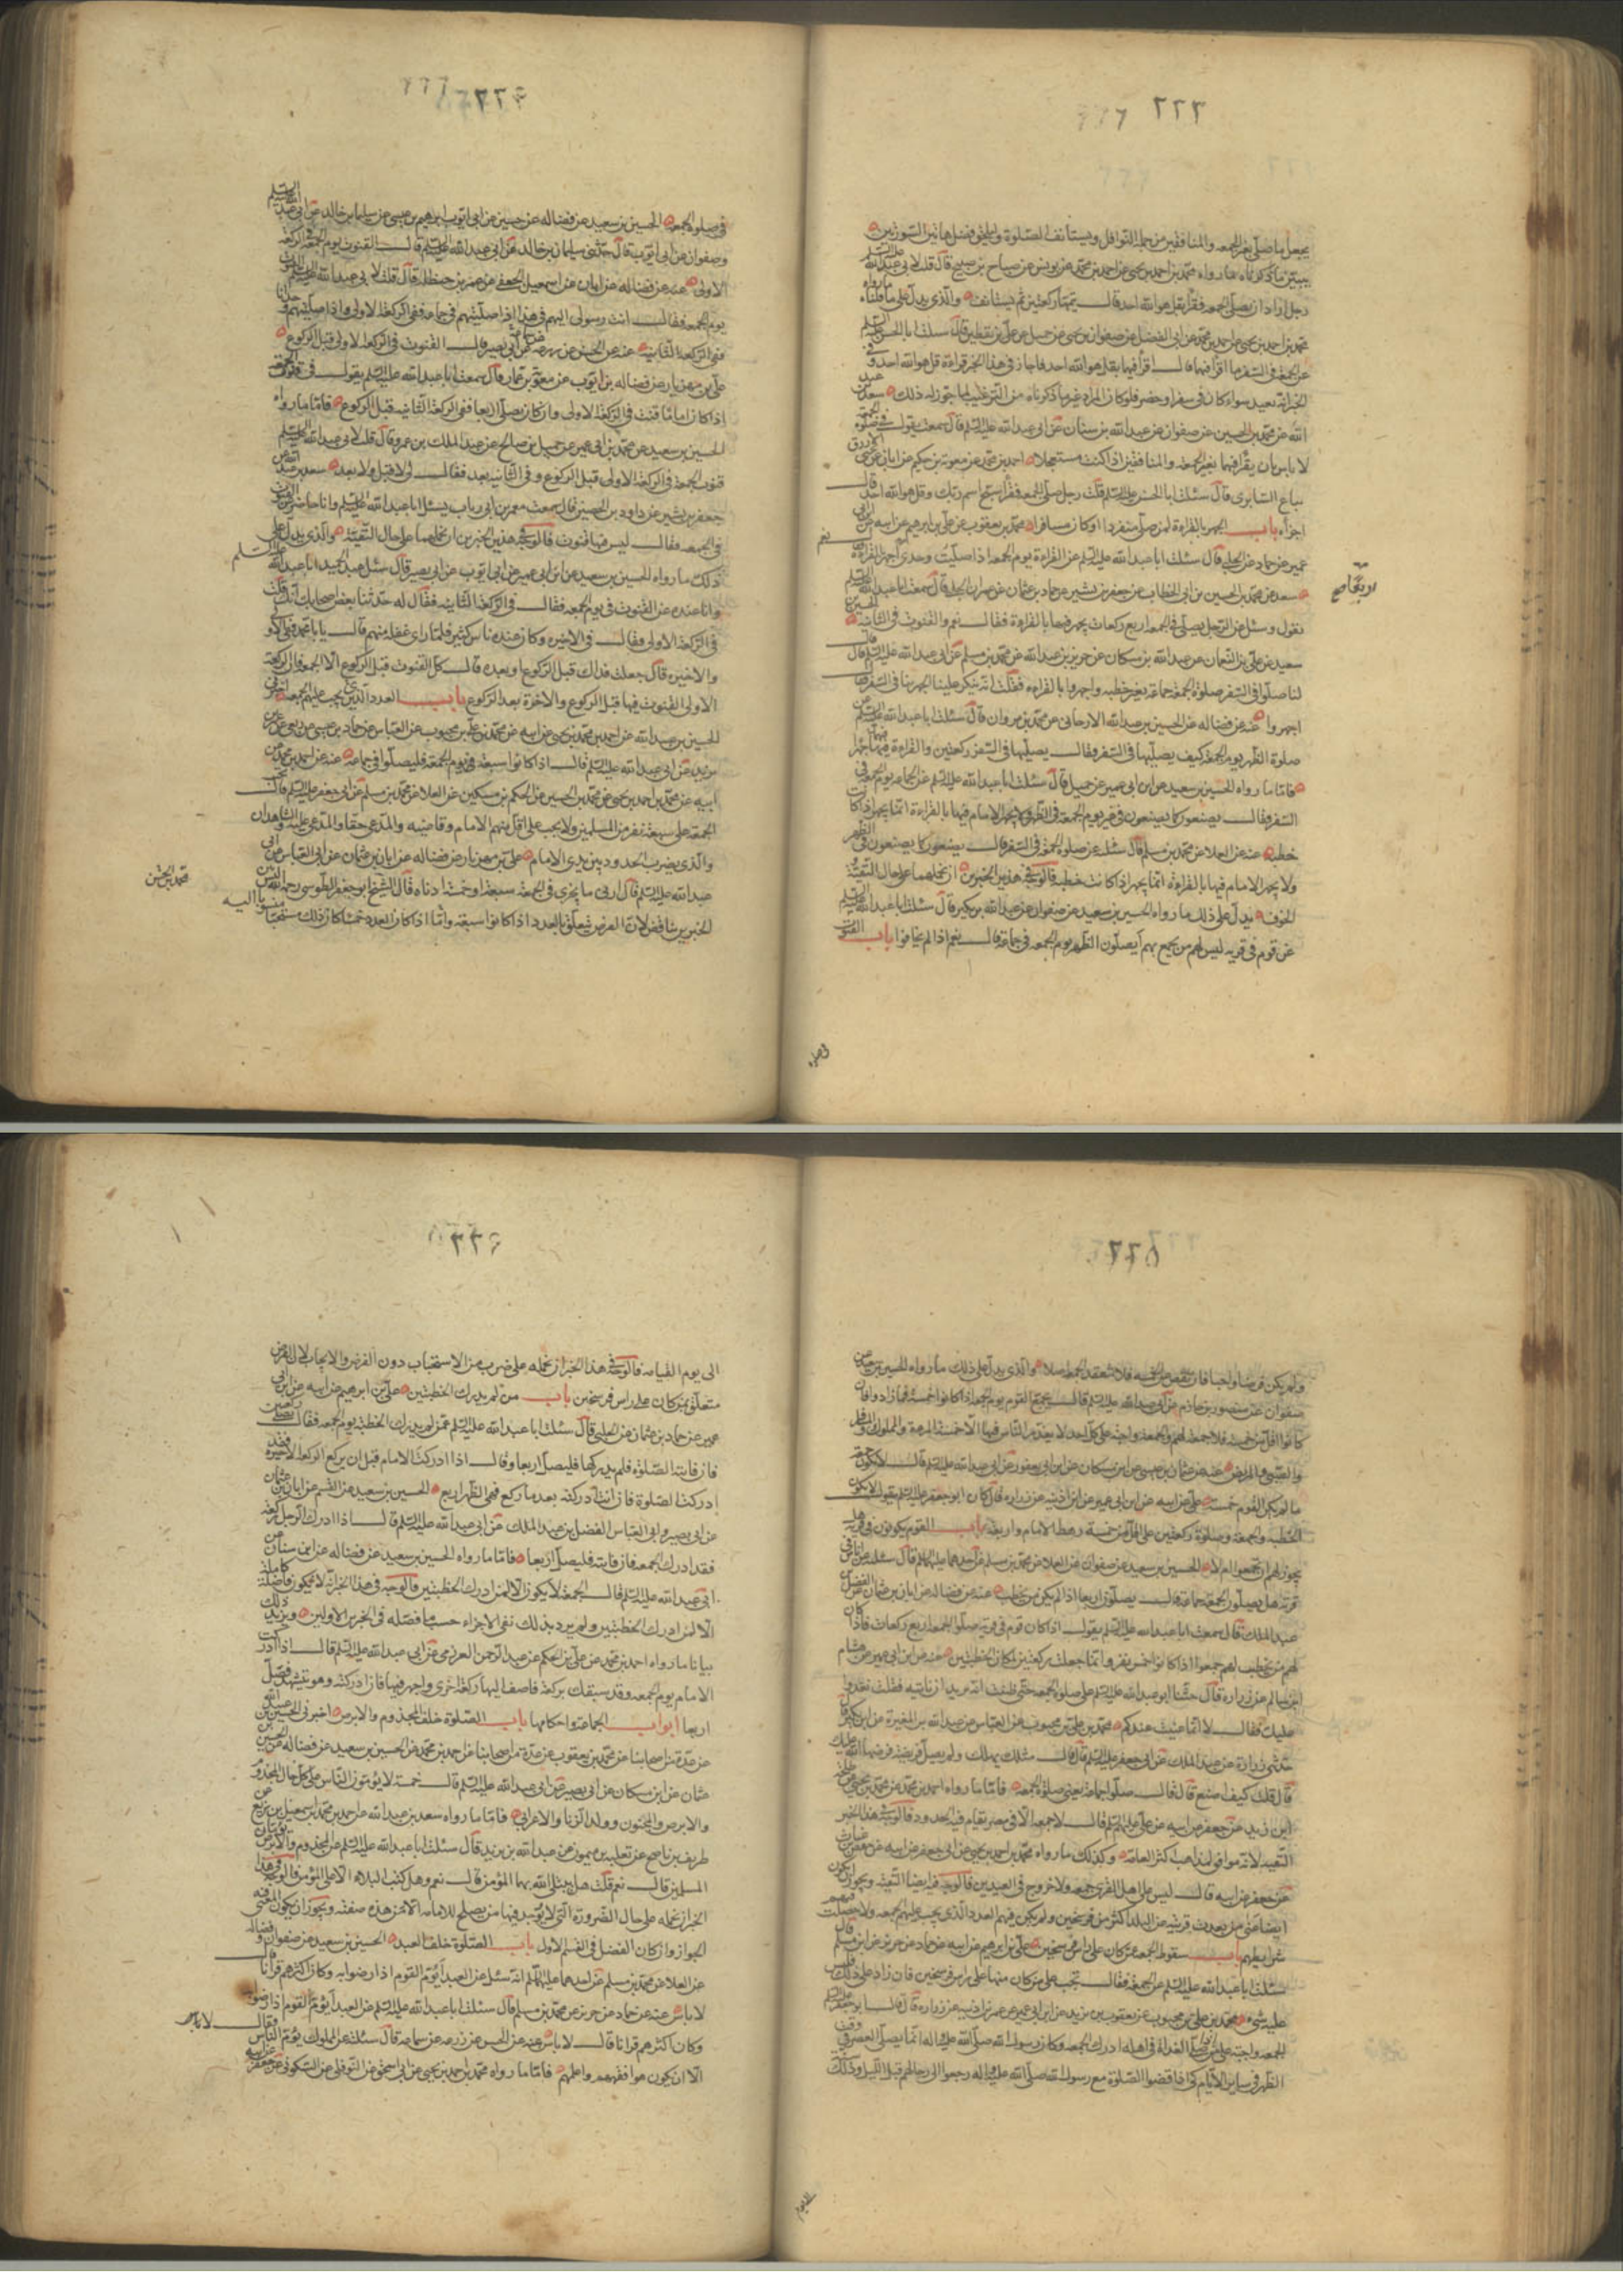 ٢٢٣
يجعل ما صلى بغير الجمعه والمنافقين من جملة النوافل ويستأنف الصلوة وليلحق فضل هاتين السورتين
يبين ما ذكرناه ما رواه محمد بن احمد بن يحيى عن احمد بن محمد عن يونس عن صباح بن صبيح قال قلت لابي عبد الله عليه السلم
رجل اراد ان يصلى الجمعه فقرأ بقل هو الله احد قال يتمها ركعتين ثم يستانف والذى يدل على ما قلناه ما رواه
محمد بن احمد بن يحيى عن احمد بن محمد عن ابى الفضل عن صفوان بن يحيى عن جميل عن على بن يقطين قال سئلت ابا الحسن عليه السلم
عن الجمعة فى السفر ما اقرأ فيهما قال اقرأ فيهما بقل هو الله احد فاجاز فى هذا الخبر قراءة قل هو الله احد وفى
الله عن محمد بن الحسين عن صفوان عن عبد الله بن سنان عن ابى عبد الله عليه السلم قال سمعته يقول فى صلوة الجمعة
لا باس بان يقرأ فيهما بغير الجمعة والمنافقين اذا كنت مستعجلا احمد بن محمد عن معوية بن حكيم عن ابان عن يحيى الازرق
بياع السابرى قال سئلت ابا الحسن عليه السلم قلت رجل صلى الجمعه فقرأ سبح اسم ربك وقل هو الله احد قال
اجزأه باب الجهر بالقراءة لمن صلى منفردا او كان مسافرا محمد بن يعقوب عن على بن ابراهيم عن ابيه عن ابن ابى
عمير عن حماد عن الحلبى قال سئلت ابا عبد الله عليه السلم عن القراءة يوم الجمعه اذا صليت وحدى اجهر بالقراءة قال نعم
سعد عن محمد بن الحسين بن ابى الخطاب عن جعفر بن بشير عن حماد بن عثمان عن عمران الحلبى قال سمعت ابا عبد الله عليه السلم
يقول وسئل عن الرجل يصلى فى الجمعه اربع ركعات يجهر فيها بالقراءة فقال نعم والقنوت فى الثانية الحسين بن
سعيد عن على بن النعمان عن عبد الله بن مسكان عن حريز بن عبد الله عن محمد بن مسلم عن ابى عبد الله عليه السلم قال قال
لنا صلوا فى السفر صلوة الجمعة جماعة بغير خطبه واجهروا بالقراءه فقلت انه ينكر علينا الجهر بها فى السفر قال
اجهروا عنه عن فضاله عن الحسين بن عبد الله الارجانى عن محمد بن مروان قال سئلت ابا عبد الله عليه السلم عن
صلوة الظهر يوم الجمعة كيف يصليها فى السفر فقال يصليها فى السفر ركعتين والقراءة فيهما جهرا
فاما ما رواه الحسين بن سعيد عن ابن ابى عمير عن جميل قال سئلت ابا عبد الله عليه السلم عن الجماعه يوم الجمعه فى
السفر فقال يصنعون كما يصنعون فى غير يوم الجمعة فى الظهر ولا يجهر الامام فيها بالقراءة انما يجهر اذا كانت
خطبه عنه عن العلا عن محمد بن مسلم قال سئلته عن صلوة الجمعة فى السفر قال يصنعون كما يصنعون فى الظهر
ولا يجهر الامام فيها بالقراءة انما يجهر اذا كانت خطبه فالوجه فى هذين الخبرين ان نحملهما على حال التقية و
الخوف يدل على ذلك ما رواه الحسين بن سعيد عن صفوان عن عبد الله بن بكير قال سئلت ابا عبد الله عليه السلم
عن قوم فى قريه ليس لهم من يجمع بهم ايصلون الظهر يوم الجمعه فى جماعة قال نعم اذا لم يخافوا باب القنوت
فى صلوة
فى صلوة الجمعه الحسين بن سعيد عن فضاله عن حسين عن ابى ايوب ابراهيم بن عيسى عن سليمان بن خالد عن ابى عبد الله عليه السلم
وصفوان عن ابى ايوب قال حدثنى سليمان بن خالد عن ابى عبد الله عليه السلم قال القنوت يوم الجمعة فى الركعة
الاولى عنه عن فضاله عن ابان عن اسمعيل الجعفى عن عمر بن حنظله قال قلت لابى عبد الله عليه السلم القنوت
يوم الجمعه فقال انت رسولى اليهم فى هذا اذا صليتم فى جماعه ففى الركعة الاولى واذا صليتم وحدانا
ففى الركعة الثانيه عنه عن الحسن عن زرعه عن ابى بصير قال القنوت فى الركعة الاولى قبل الركوع
على بن مهزيار عن فضاله بن ايوب عن معوية بن عمار قال سمعت ابا عبد الله عليه السلم يقول فى قنوت الجمعة
اذا كان اماما قنت فى الركعة الاولى وان كان يصلى اربعا ففى الركعة الثانيه قبل الركوع فاما ما رواه
الحسين بن سعيد عن محمد بن ابى عمير عن جميل بن صالح عن عبد الملك بن عمرو قال قلت لابى عبد الله عليه السلم
قنوت الجمعة فى الركعة الاولى قبل الركوع وفى الثانيه بعد فقال لى لا قبل ولا بعد سعد بن عبد الله عن
جعفر بن بشير عن داود بن الحصين قال سمعت معمر بن ابى رئاب يسئل ابا عبد الله عليه السلم وانا حاضر عن القنوت
فى الجمعه فقال ليس فيها قنوت فالوجه فى هذين الخبرين ان نحملهما على حال التقيه والذى يدل على
ذلك ما رواه الحسين بن سعيد عن ابن ابى عمير عن ابى ايوب عن ابى بصير قال سئل عبد الحميد ابا عبد الله عليه السلم
وانا عنده عن القنوت فى يوم الجمعه فقال فى الركعة الثانيه فقال له حدثنا بعض اصحابك انك قلت
فى الركعة الاولى فقال فى الاخيره وكان عنده ناس كثير فلما راى غفلة منهم قال يا با محمد فى الاولى
والاخيره قال جعلت فداك قبل الركوع او بعده قال كل القنوت قبل الركوع الا الجمعه فان الركعة
الاولى القنوت فيها قبل الركوع والاخرة بعد الركوع باب العدد الذين يجب عليهم الجمعة اخبرنى
الحسين بن عبيد الله عن احمد بن محمد بن يحيى عن ابيه عن محمد بن على بن محبوب عن العباس عن حماد بن عيسى عن ربعى عن عمر بن
يزيد عن ابى عبد الله عليه السلم قال اذا كانوا سبعة فى يوم الجمعة فليصلوا فى جماعة
ابيه عن محمد بن احمد بن يحيى عن محمد بن الحسين عن الحكم بن مسكين عن العلا عن محمد بن مسلم عن ابى جعفر عليه السلم قال تجب
الجمعة على سبعة نفر من المسلمين ولا يجب على اقل منهم الامام وقاضيه والمدعى حقا والمدعى عليه والشاهدان
والذى يضرب الحدود بين يدى الامام على بن مهزيار عن فضاله عن ابان بن عثمان عن ابى العباس عن ابى
عبد الله عليه السلم قال ادنى ما يجزى فى الجمعة سبعة او خمسة ادناه قال الشيخ ابو جعفر الطوسى رحمه الله
الخبرين تناقض لان الفرض يتعلق بالعدد اذا كانوا سبعة واما اذا كان العدد خمسة كان ذلك مستحبا
محمد بن الحسن
ولم يكن فرضا واجبا فان نقص عن الخمسه فلا تنعقد الجمعه اصلا والذى يدل على ذلك ما رواه الحسين بن سعيد عن
صفوان عن منصور بن حازم عن ابى عبد الله عليه السلم قال يجمع القوم يوم الجمعة اذا كانوا خمسة فما زادوا فان
كانوا اقل من خمسة فلا جمعة لهم والجمعة واجبة على كل احد لا يعذر الناس فيها الا خمسة المرءة والمملوك والمسافر
والصبى والمريض عنه عن عثمان بن عيسى عن ابن مسكان عن ابن ابى يعفور عن ابى عبد الله عليه السلم قال لا يكون جمعة
ما لم يكن القوم خمسة على عن ابيه عن ابن ابى عمير عن ابن اذينه عن زراره قال كان ابو جعفر عليه السلم يقول لا يكون
الخطبه والجمعة وصلوة ركعتين على اقل من خمسة رهط الامام واربعة باب القوم يكونون فى قرية هل
يجوز لهم ان يجمعوا ام لا الحسين بن سعيد عن صفوان عن العلا عن محمد بن مسلم عن احدهما عليهما السلم قال سئلته عن اناس فى
قرية هل يصلون الجمعة جماعة قال يصلون اربعا اذا لم يكن من يخطب عنه عن فضاله عن ابان بن عثمان عن الفضل بن
عبد الملك قال سمعت ابا عبد الله عليه السلم يقول اذا كان قوم فى قرية صلوا الجمعه اربع ركعات فان كان
لهم من يخطب لهم جمعوا اذا كانوا خمس نفر وانما جعلت ركعتين لمكان الخطبتين عنه عن ابن ابى عمير عن هشام
ابن سالم عن زراره قال حثنا ابو عبد الله عليه السلم على صلوة الجمعه حتى ظننت انه يريد ان نأتيه فقلت نغدوا
عليك فقال لا انما عنيت عندكم محمد بن على بن محبوب عن العباس عن عبد الله بن المغيرة عن ابن بكير قال
حدثنى زرارة عن عبد الملك عن ابى جعفر عليه السلم قال قال مثلك يهلك ولم يصل فريضة فرضها الله
قال قلت كيف اصنع قال قال صلوا جماعة يعنى صلوة الجمعه فاما ما رواه احمد بن محمد عن محمد بن يحيى عن طلحة
ابن زيد عن جعفر عن ابيه عن على عليهم السلم قال لا جمعة الا فى مصر تقام فيه الحدود فالوجه فى هذا الخبر
التقيه لانه موافق لمذاهب اكثر العامة وكذلك ما رواه محمد بن احمد بن يحيى عن ابى جعفر عن ابيه عن حفص بن غياث
عن جعفر عن ابيه قال ليس على اهل القرى جمعة ولا خروج فى العيدين فالوجه فيه ايضا التقية ويجوز ان يكون
ايضا عنى من بعدت قريته عن البلد اكثر من فرسخين ولم يكن فيهم العدد الذى يجب عليهم جمعه ولا حصلت
شرايطهم باب سقوط الجمعة عمن كان على راس فرسخين على بن ابراهيم عن ابيه عن حماد عن حريز عن ابن مسلم قال
سئلت ابا عبد الله عليه السلم عن الجمعة فقال تجب على من كان منها على راس فرسخين فان زاد على ذلك فليس
عليه شىء محمد بن على بن محبوب عن يعقوب بن يزيد عن ابن ابى عمير عن عمر بن اذينه عن زراره قال قال ابو جعفر عليه السلم
الجمعه واجبة على من ان صلى الغداة فى اهله ادرك الجمعه وكان رسول الله صلى الله عليه واله انما يصلى العصر فى وقت
الظهر فى ساير الايام كى اذا قضوا الصلوة مع رسول الله صلى الله عليه واله رجعوا الى رحالهم قبل الليل وذلك
الى يوم القيامه فالوجه فى هذا الخبر ان نحمله على ضرب من الاستحباب دون الفرض والايجاب لان الفرض
متعلق بمن كان على راس فرسخين باب من لم يدرك الخطبتين على بن ابرهيم عن ابيه عن ابن ابى
عمير عن حماد بن عثمان عن الحلبى قال سئلت ابا عبد الله عليه السلم عمن لم يدرك الخطبة يوم الجمعه فقال يصلى ركعتين
فان فاتته الصلوة فلم يدركها فليصل اربعا وقال اذا ادركت الامام قبل ان يركع الركعة الاخيره فقد
ادركت الصلوة فان انت ادركته بعد ما ركع فهى الظهر اربع الحسين بن سعيد عن القسم عن ابان بن عثمان
عن ابى بصير وابى العباس الفضل بن عبد الملك عن ابى عبد الله عليه السلم قال اذا ادرك الرجل ركعة
فقد ادرك الجمعه فان فاتته فليصل اربعا فاما ما رواه الحسين بن سعيد عن فضاله عن ابن سنان عن
ابى عبد الله عليه السلم قال الجمعة لا يكون الا لمن ادرك الخطبتين فالوجه فى هذا الخبر انه لا يكون كاملة فاضلة
الا لمن ادرك الخطبتين ولم يرد بذلك نفى الاجزاء حسب ما فصله فى الخبرين الاولين ويزيد ذلك
بيانا ما رواه احمد بن محمد عن على بن الحكم عن عبد الرحمن العرزمى عن ابى عبد الله عليه السلم قال اذا ادركت
الامام يوم الجمعه وقد سبقك بركعة فاضف اليها ركعة اخرى واجهر فيها فان ادركته وهو يتشهد فصل
اربعا ابواب الجماعة واحكامها باب الصلوة خلف المجذوم والابرص اخبرنى الحسين بن عبيد الله
عن عدة من اصحابنا عن محمد بن يعقوب عن عدة من اصحابنا عن احمد بن محمد عن الحسين بن سعيد عن فضاله عن الحسين بن
عثمان عن ابن مسكان عن ابى بصير عن ابى عبد الله عليه السلم قال خمسة لا يؤمون الناس على كل حال المجذوم
والابرص والمجنون وولد الزنا والاعرابى فاما ما رواه سعد بن عبد الله عن احمد بن محمد بن اسمعيل بن بزيع عن
طريف بن ناصح عن ثعلبه بن ميمون عن عبد الله بن يزيد قال سئلت ابا عبد الله عليه السلم عن المجذوم والابرص يؤمان
المسلمين قال نعم قلت هل يبتلى الله بهما المؤمن قال نعم وهل كتب البلاء الا على المؤمن فالوجه فى هذا
الخبر ان نحمله على حال الضرورة التى لا يوجد فيها من يصلح للامامه الا من هذه صفته ويجوز ان يكون
الجواز وان كان الفضل فى القسم الاول باب الصلوة خلف العبد الحسين بن سعيد عن صفوان وفضاله
عن العلا عن محمد بن مسلم عن احدهما عليهما السلم انه سئل عن العبد يؤم القوم اذا رضوا به وكان اكثرهم قرانا قال
لا باس عنه عن حماد عن حريز عن محمد بن مسلم قال سئلت ابا عبد الله عليه السلم عن العبد يؤم القوم اذا رضوا به
وكان اكثرهم قرانا قال لا باس عنه عن الحسن عن زرعه عن سماعه قال سئلته عن المملوك يؤم الناس فقال لا باس
الا ان يكون هو افقههم واعلمهم فاما ما رواه محمد بن احمد بن يحيى عن ابى اسحق عن النوفلى عن السكونى عن جعفر عن ابيه